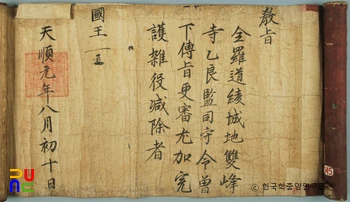 敎旨
全羅道綾城地雙峰
寺乙良監司守令曾
下傳旨更審尤加完
護雜役減除者
國王
天順元年八月初十日
ⓒ 한국학중앙연구원